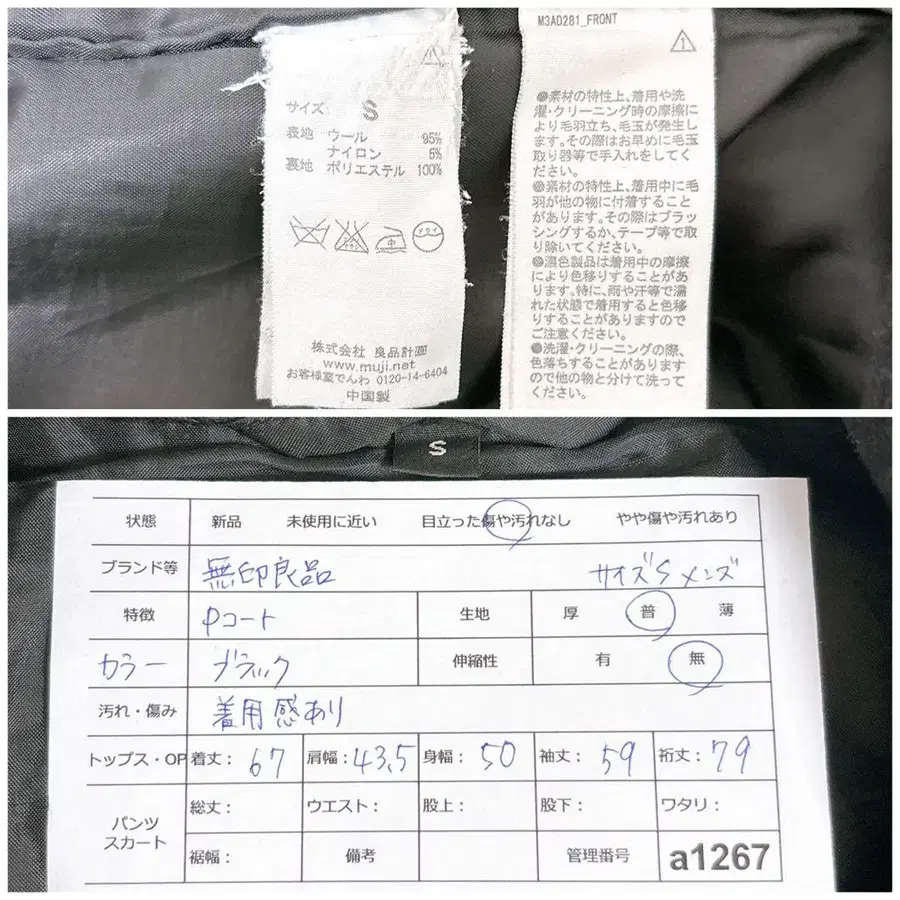 サイズ: S
表地 ウール 95%
ナイロン 5%
裏地 ポリエステル 100%
株式会社 良品計画
www.muji.net
お客様室でんわ 0120-14-6404
中国製
M3AD281_FRONT
1
●素材の特性上、着用や洗
濯・クリーニング時の摩擦に
より毛羽立ち、毛玉が発生し
ます。その際はお早めに毛玉
取り器等で手入れをしてく
ださい。
●素材の特性上、着用中に毛
羽が他の物に付着すること
があります。その際はブラッ
シングするか、テープ等で取
り除いてください。
●濃色製品は着用中の摩擦
により色移りすることがあ
ります。特に、雨や汗等で濡
れた状態で着用すると色移
りすることがありますので
ご注意ください。
●洗濯・クリーニングの際、
色落ちすることがあります
ので他の物と分けて洗って
ください。
S
状態 新品 未使用に近い 目立った傷や汚れなし やや傷や汚れあり
ブランド等 無印良品 サイズS メンズ
特徴 Pコート 生地 厚 普 薄
カラー ブラック 伸縮性 有 無
汚れ・傷み 着用感あり
トップス・OP 着丈: 67 肩幅: 43.5 身幅: 50 袖丈: 59 裄丈: 79
パンツ
スカート
総丈: ウエスト: 股上: 股下: ワタリ:
裾幅: 備考 管理番号 a1267